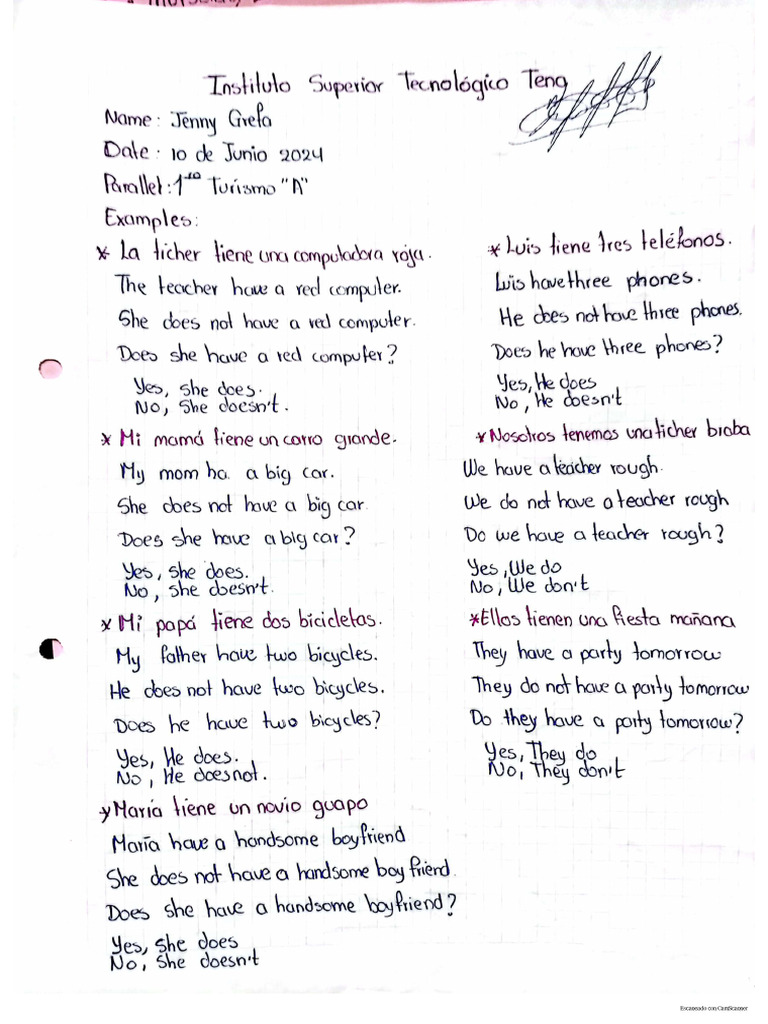 Instituto Superior Tecnológico Tena
Name: Jenny Grefa
Date: 10 de Junio 2024
Parallel: 1ro Turismo "A"
Examples:
* La ticher tiene una computadora roja.
The teacher have a red computer.
She does not have a red computer.
Does she have a red computer?
Yes, she does.
No, She doesn't.
* Mi mamá tiene un carro grande.
My mom ha a big car.
She does not have a big car
Does she have a big car?
Yes, she does.
No, she doesn't.
* Mi papá tiene dos bicicletas.
My father have two bicycles.
He does not have two bicycles.
Does he have two bicycles?
Yes, He does.
No, He doesnot.
* María tiene un novio guapo
María have a handsome boyfriend
She does not have a handsome boyfriend.
Does she have a handsome boyfriend?
Yes, she does
No, She doesn't
* Luis tiene tres teléfonos.
Luis have three phones.
He does not have three phones.
Does he have three phones?
Yes, He does
No, He doesn't
* Nosotros tenemos una ticher braba
We have a teacher rough.
We do not have a teacher rough
Do we have a teacher rough?
Yes, We do
No, We don't
* Ellos tienen una fiesta mañana
They have a party tomorrow
They do not have a party tomorrow
Do they have a party tomorrow?
Yes, They do
No, They don't
Escaneado con CamScanner